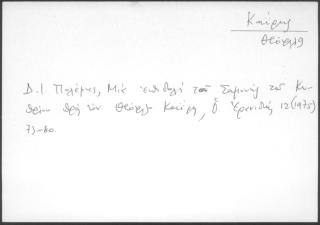 Καΐρης
Θεόφιλος
Δ. Ι. Πολέμης, Μία ἐπιστολὴ τοῦ Σαμουὴλ τοῦ Κυ-
πρίου πρὸς τὸν Θεόφιλο Καΐρη, Ὁ Ἐρανιστής 12 (1975)
73-80.